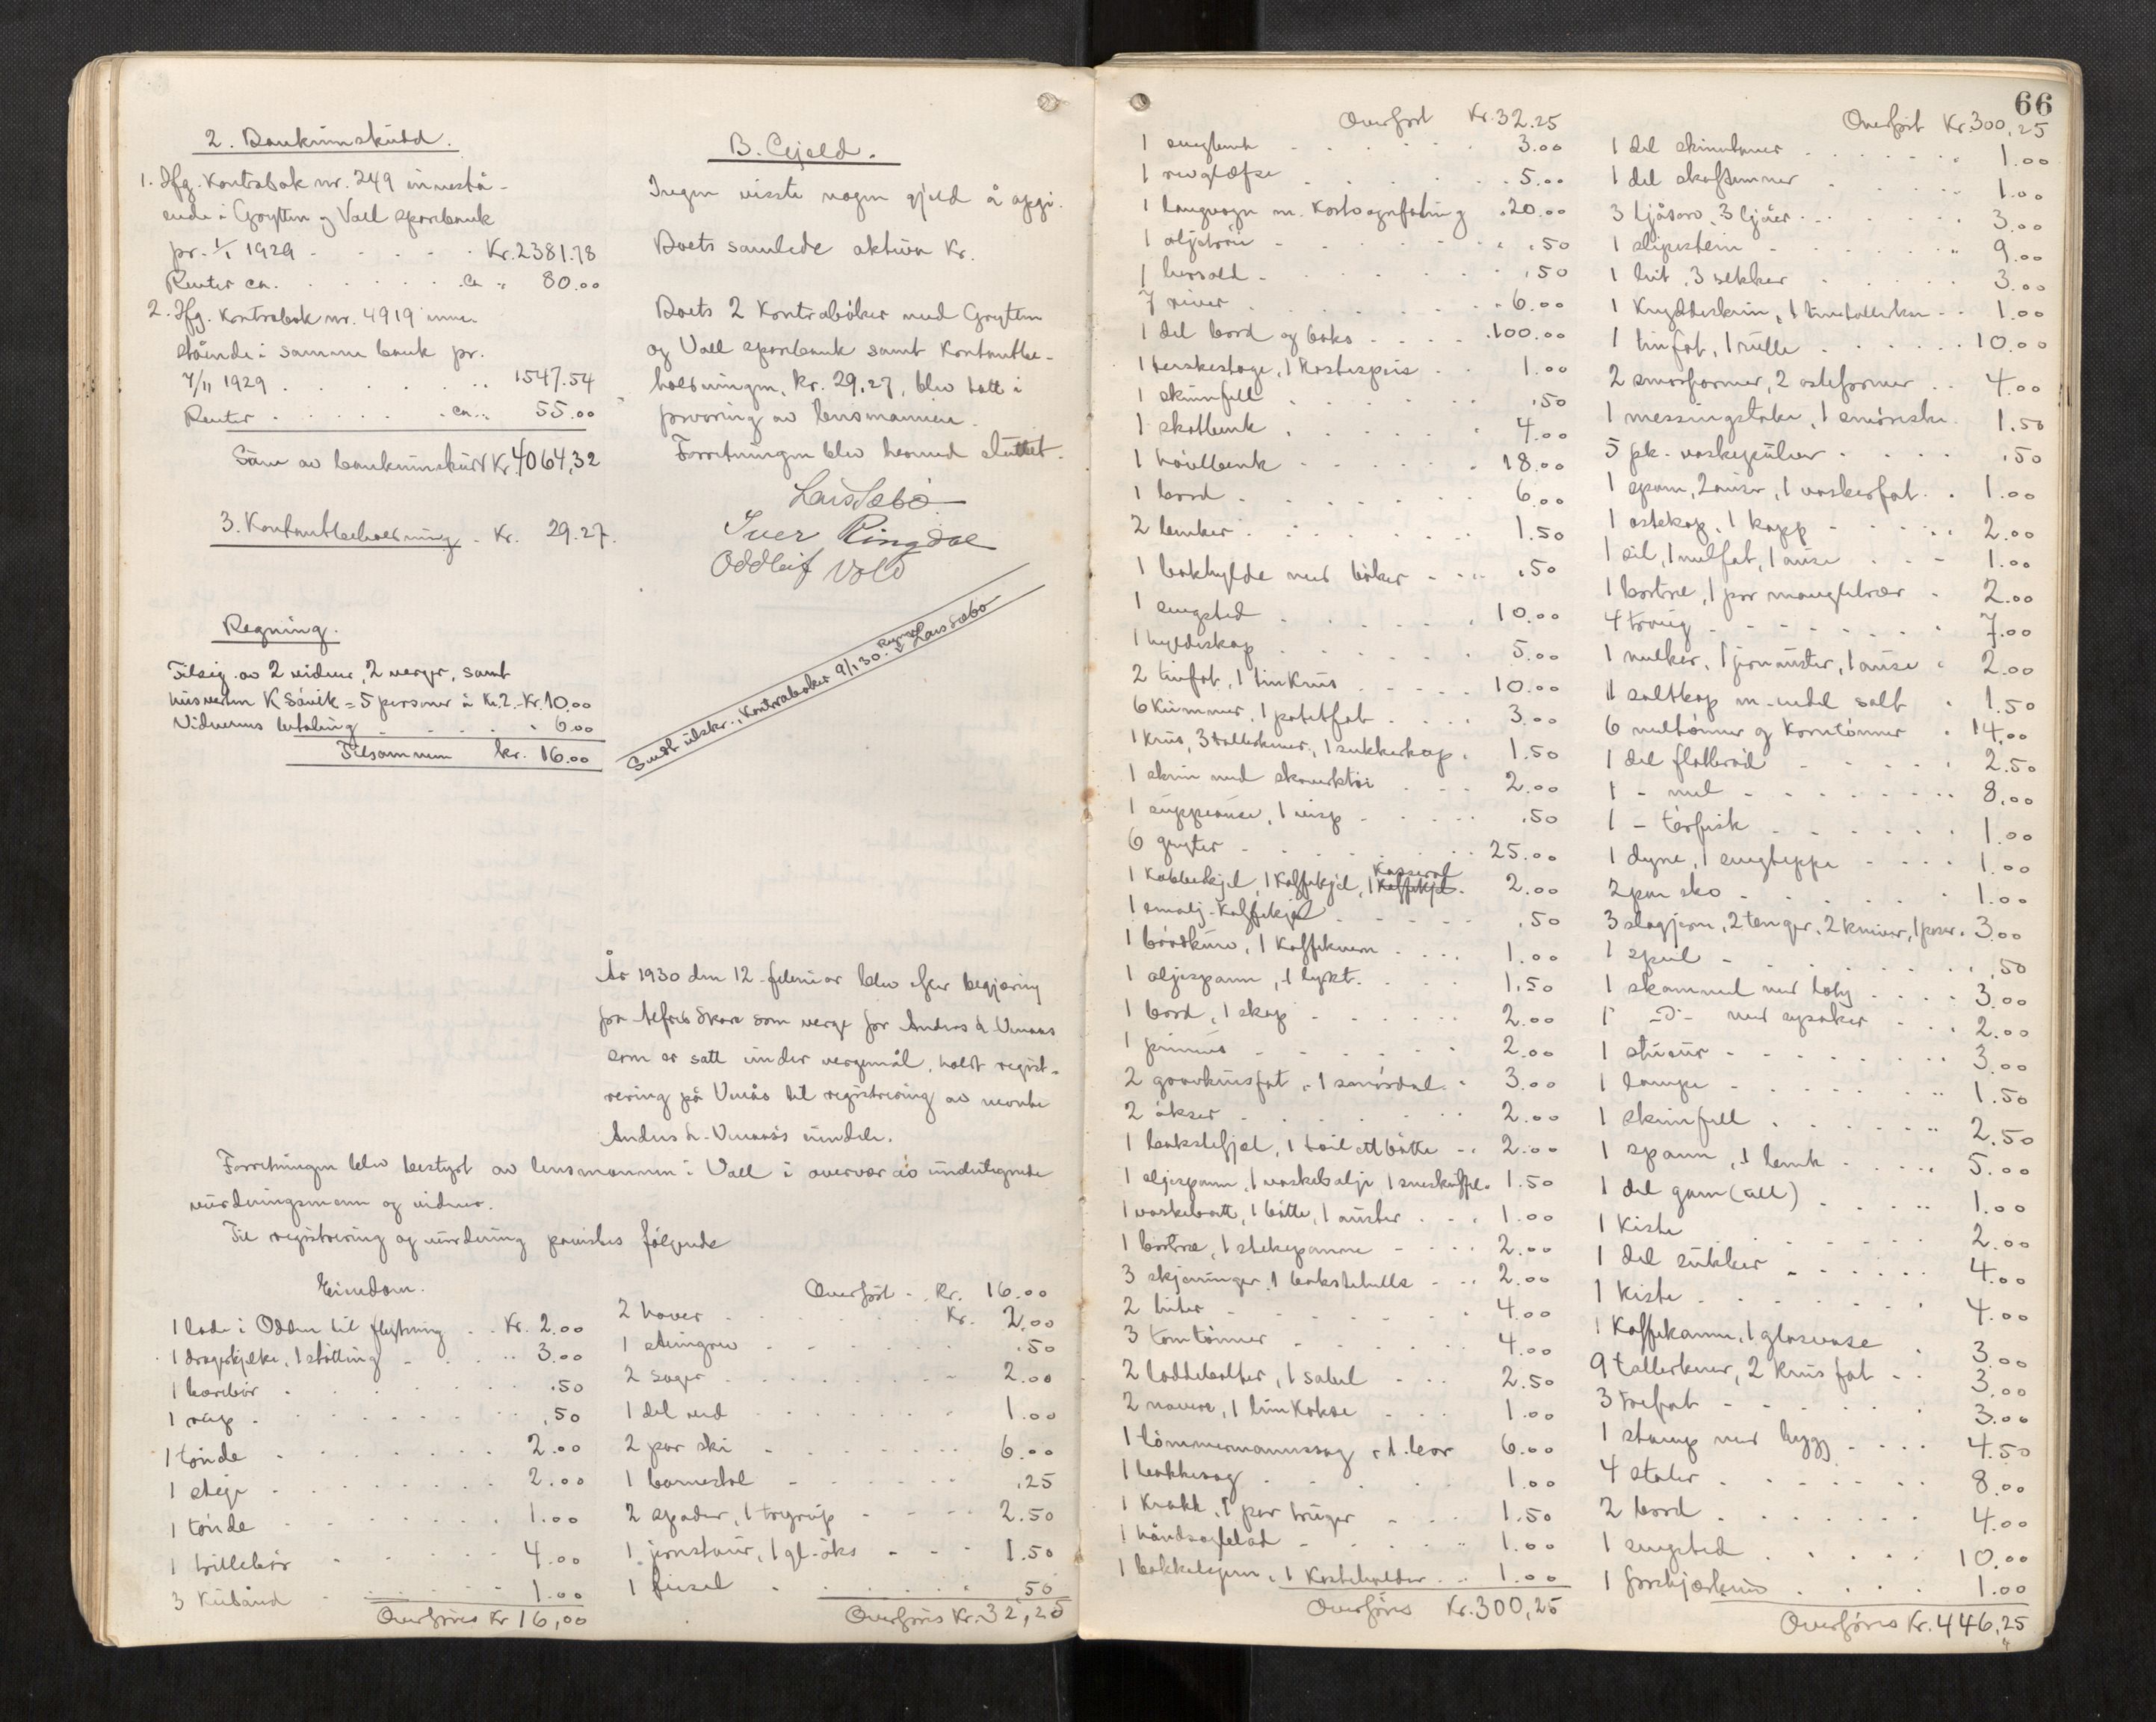 2. Bankinnskudd.
1. Ifg. Kontrabok nr. 249 innestå-
ende i Grytten og Voll sparebank
pr. 1/1 1929 - - - - - Kr. 2381.78
Renter ca. . . . . . . ca " 80.00
2. Ifg. Kontrabok nr. 4919 inne-
stående i samme bank pr.
7/11 1929 . . . . . . . " 1547.54
Renter . . . . . . ca. " 55.00
Sum av bankinnskudd Kr. 4064,32
3. Kontantbeholdning - Kr. 29.27.
Regning.
Tilsig. av 2 vidner, 2 verger, samt
husverten K Såvik = 5 personer à Kr. 2.- Kr. 10.00
Vidnernes betaling - - - - - " 6.00
Tilsammen kr. 16.00
B. Gjeld.
Ingen visste nogen gjeld å opgi.
Boets samlede aktiva Kr.
Boets 2 Kontrabøker med Grytten
og Voll sparebank samt Kontantbe-
holdningen, kr. 29,27, blev tatt i
forvaring av lensmannen.
Forretningen blev hermed sluttet.
Lars Sæbø
Iver Ringdal
Oddleif Vold
Sendt utskr., Kontrabøker 9/1 30. Lars Sæbø
År 1930 den 12. februar blev efter begjæring
fra Alfred Skare som verge for Anders L. Venaas
som er satt under vergemål, holdt registr-
rering på Venås til registrering av nevnte
Anders L. Venaas's eiendele.
Forretningen blev bestyrt av lensmannen i Voll i overvær av undertegnede
vurderingsmenn og vidner.
Til registrering og vurdering påvistes følgende
Eiendom.
1 lade i Odden til flytning . . Kr. 2.00
1 dragekjelke, 1 støtting - - - - " 3.00
1 bærebør . . . . . . . .50
1 rusp . . . . . . . . .50
1 tønde . . . . . . . 2.00
1 stige . . . . . . . . 2.00
1 tønde - - - - - - . . 1.00
1 trillebør - - - - - 4.00
3 Kubånd - . . . . . . 1.00
Overføres Kr 16,00
Overført - . Kr. 16.00
2 hover . . . . . . . Kr. 2.00
1 steingrev - - - - - - .50
2 sager . . . . . . . - 2.00
1 del ved - - - - - - - 1.00
2 par ski - . . . . . - 6.00
1 barnestol - - - - - - .25
2 spader, 1 tregrep - - - - 2.50
1 jernstaur, 1 gl. øks - - - 1.50
1 fusel . . . . . . . . 50
Overføres Kr. 32,25
66
Overført Kr. 32.25
1 . . . . . . 3.00
1 . . . . . . . 5.00
1 langvogn m. . 20.00
1 . . . . . . . .50
1 . . . . . . . .50
7 river . . . . . . . 6.00
1 del bord og baks . . . . . 100.00
1 . . 1.00
1 skinnfell . . . . . . . .50
1 skatbenk . . . . . . 4.00
1 høvlbenk . . . . . . . 18.00
1 bord . . . . . . . . 6.00
2 benker . . . . . . . 1.50
1 bokhylde med bøker - . .. .50
1 sengsted . . . . . . . 10.00
1 hyldeskap . . . . . . . 5.00
2 tinfat, 1 tinkrus . . . . . 10.00
6 Kummer, 1 potetfat . . . . 3.00
1 Krus, 3 tallerkener, 1 sukkerkop . 1.50
1 skrin med skoverktøi . . - 2.00
1 suppeause, 1 visp - . . . . .50
6 gryter . . . . . . . . 25.00
1 Kobberkjel, 1 Kaffekjel, 1 Kasserol 2.00
1 emalj. Kaffekjel . . . . . .50
1 brødkurv, 1 Kaffekvern . . . . 1.00
1 oljespann, 1 lykt. . . . . 1.50
1 bord, 1 skap . . . . . . 2.00
1 primus - - . . . . . 2.00
2 , 1 smørdal . . 3.00
2 økser - . . . . . . . 2.00
1 bakstefjøl, 1 bøtte - . 2.00
1 oljespann, 1 vaskebalje, 1 sneskuffel . 1.50
1 vaskebrett, 1 bøtte, 1 auster . . . 1.00
1 børtre, 1 stekepanne - - . . . 2.00
3 skjæringer, 1 bakstehelle - . . 2.00
2 biter . . . . . . . . 4.00
3 tomtønner - . . . . . 4.00
2 loddebolter, 1 sabel . . . 2.50
2 navere, 1 limkokse . . . 1.00
1 tømmermannssag, 1 bor 6.00
1 bakkesag . . . . . . 1.00
1 Krakk, 1 par truger - . . . 1.50
1 håndsagblad . . . . . . 1.00
1 bakkelsjern, 1 Kosteholder . . 1.00
Overføres Kr. 300,25
Overført Kr. 300,25
1 del . . . . . . . 1.00
1 del skaftemner . . . . . . 1.00
3 ljåorv, 3 ljåer . . . . . . 3.00
1 slipestein . . . . . . " 9.00
1 hit, 3 sekker . . . . . 3.00
1 Krydderskrin, 1 tinntallerken . . 1.00
1 tinfat, 1 rulle . . . . . . 10.00
2 smørformer, 2 osteformer . . 4.00
1 messingstake, 1 1.50
5 pk. vaskepulver . . . . . .50
1 spann, 2 auser, 1 vaskerfat . . 1.00
1 ostekop, 1 kopp - . . . . 2.00
1 sil, 1 melfat, 1 ause . . - 1.00
1 børtre, 1 par mangletrær . 2.00
4 traug - - - - - - - . 7.00
1 melker, 1 jernauster, 1 ause . 2.00
1 saltkop m. endel salt . 1.50
6 meltønner og Korntønner . 14,00
1 del flatbrød - - - - . 2.50
1 - mel - - - - - - . . 8.00
1 - tørfisk - . . . . . . 1.00
1 dyne, 1 sengteppe - . . . 1.00
2 par sko . . . . . . . 1.00
3 slagjern, 2 tenger, 2 kniver, 1 . 3.00
1 speil - . . . . . . . .50
1 skammel med tøy . . . . 3.00
1 -D- med sysaker . . . 2.00
1 stueur - - - - - . . . 3.00
1 lampe - . . . . . . " 1.50
1 skinnfell . . . . . . " 2.50
1 spann, 1 benk . . . . 5.00
1 del garn (ull) . . . . " 1.00
1 Kiste . . . . . . . 2.00
1 del sukker - . . . . . 4.00
1 Kiste - . . . . . . . 4.00
1 Kaffekanne, 1 glasvase . 3.00
9 tallerkener, 2 Krus fat . . 3.00
3 trefat - - - . . . . 3.00
1 stamp med bygg . . . . 4.50
4 stoler . - - . . . . 8.00
2 bord . . . . . . . 4.00
1 sengsted . . . . . 10.00
1 . . . . 1.00
Overføres Kr. 446,25